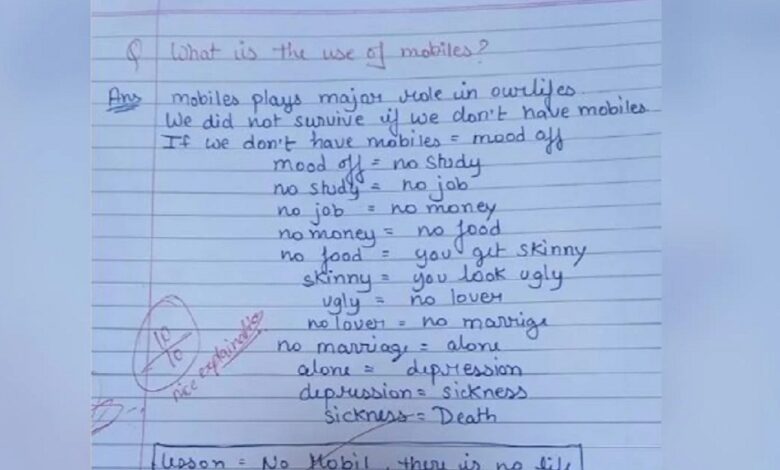 Q What is the use of mobiles?
Ans mobiles plays major role in ourlifes
We did not survive if we don't have mobiles
If we don't have mobiles = mood off
mood off = no study
no study = no job
no job = no money
no money = no food
no food = you get skinny
skinny = you look ugly
ugly = no lover
no lover = no marrige
no marriage = alone
alone = depression
depression = sickness
sickness = Death
10/10
nice explaination
Lesson = No Mobil, there is no life